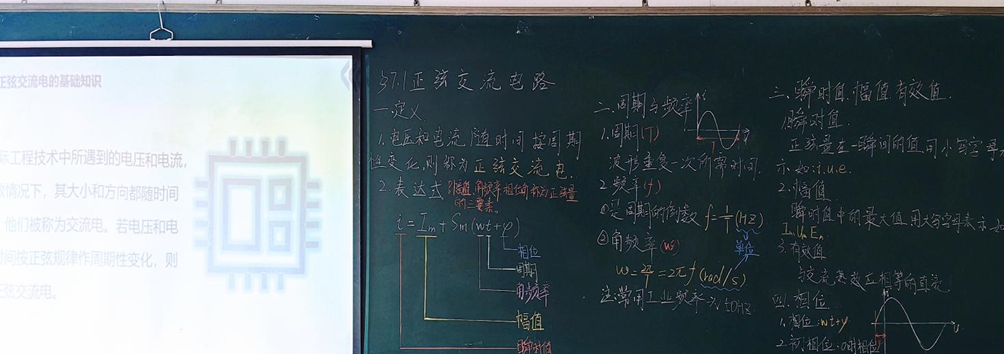 正弦交流电的基础知识
际工程技术中所遇到的电压和电流,
情况下，其大小和方向都随时间
他们被称为交流电。若电压和电
间按正弦规律作周期性变化，则
弦交流电。
§7.1正弦交流电路
一.定义
1.电压和电流随时间按周期
性变化,则称为正弦交流电.
2.表达式
的三要素.
i=Im+Sm(wt+φ)
相位
周期
角频率
幅值
瞬时值
二.周期与频率
1.周期(T)
波形重复一次所需时间.
2.频率(f)
①是周期的倒数 f=1/T(HZ)
单位
②角频率(w)
w=2π/T=2πf(rad/s)
注:常用工业频率为50HZ
三.瞬时值.幅值.有效值.
1.瞬时值.
正弦量在一瞬间的值,用小写字母
示.如:i.u.e.
2.幅值
瞬时值中的最大值,用大写字母表示.如
Im Um Em
3.有效值
与交流热效应相等的直流.
四.相位
1.相位:wt+φ
2.初相位:0时相位